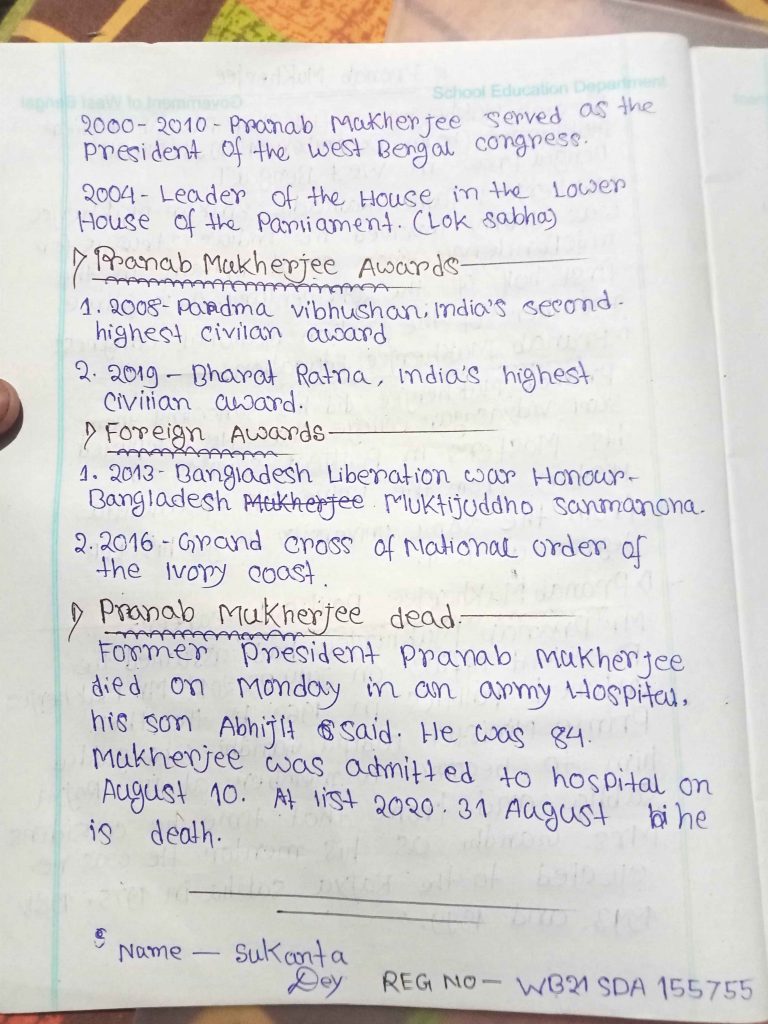 School Education Department
2000-2010-Pranab Makherjee served as the
president of the west Bengal congress.
2004-Leader of the House in the Lower
House of the Parliament. (Lok sabha)
Pranab Makherjee Awards-
1. 2008-Padma vibhushan, india's second-
highest civilan award
2. 2019 - Bharat Ratna, india's highest
civilian award.
Foreign Awards-
1. 2013-Bangladesh Liberation war Honour-
Bangladesh Makherjee Muktijuddho Sanmanona.
2. 2016-Grand cross of National order of
the Ivory coast.
Pranab Mukherjee dead.
Former president pranab Mukherjee
died on Monday in an army Hospital,
his son Abhijit said. He was 84.
Mukherjee was admitted to hospital on
August 10. At list 2020. 31 August he
is death.
Name - Sukanta
Dey REG NO- WB21 SDA 155755